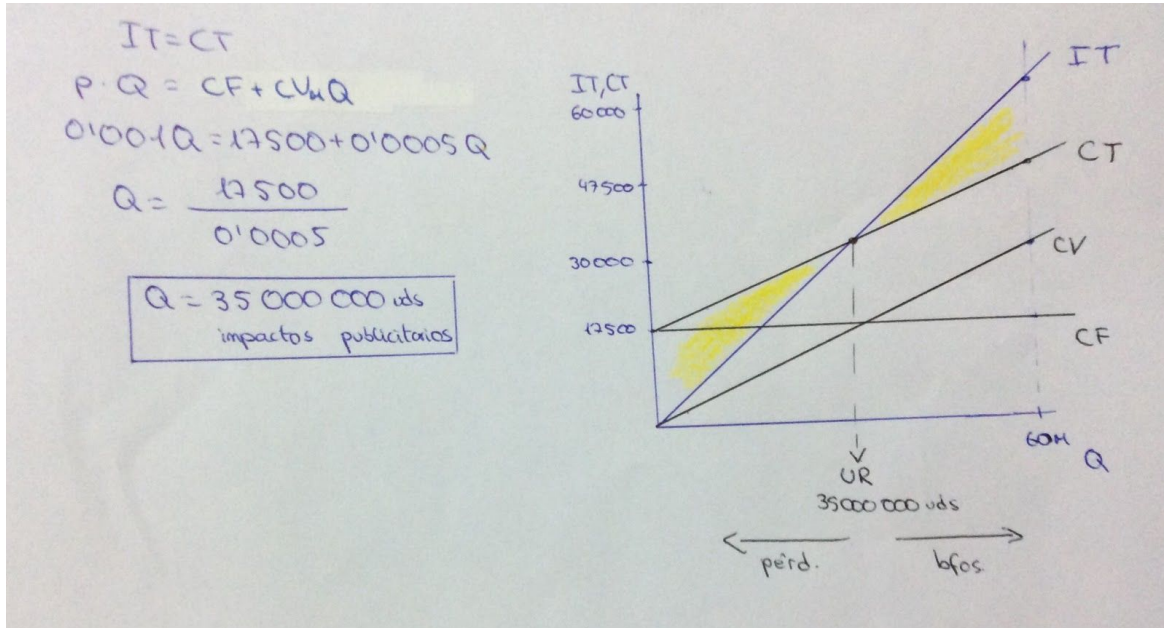 IT = CT
p · Q = CF + CVu Q
0'001Q = 17500 + 0'0005Q
Q = 17500
0'0005
Q = 35 000 000 uds
impactos publicitarios
IT, CT
60000
47500
30000
17500
IT
CT
CV
CF
60M
Q
UR
35000 000 uds
pérd.
bfos.